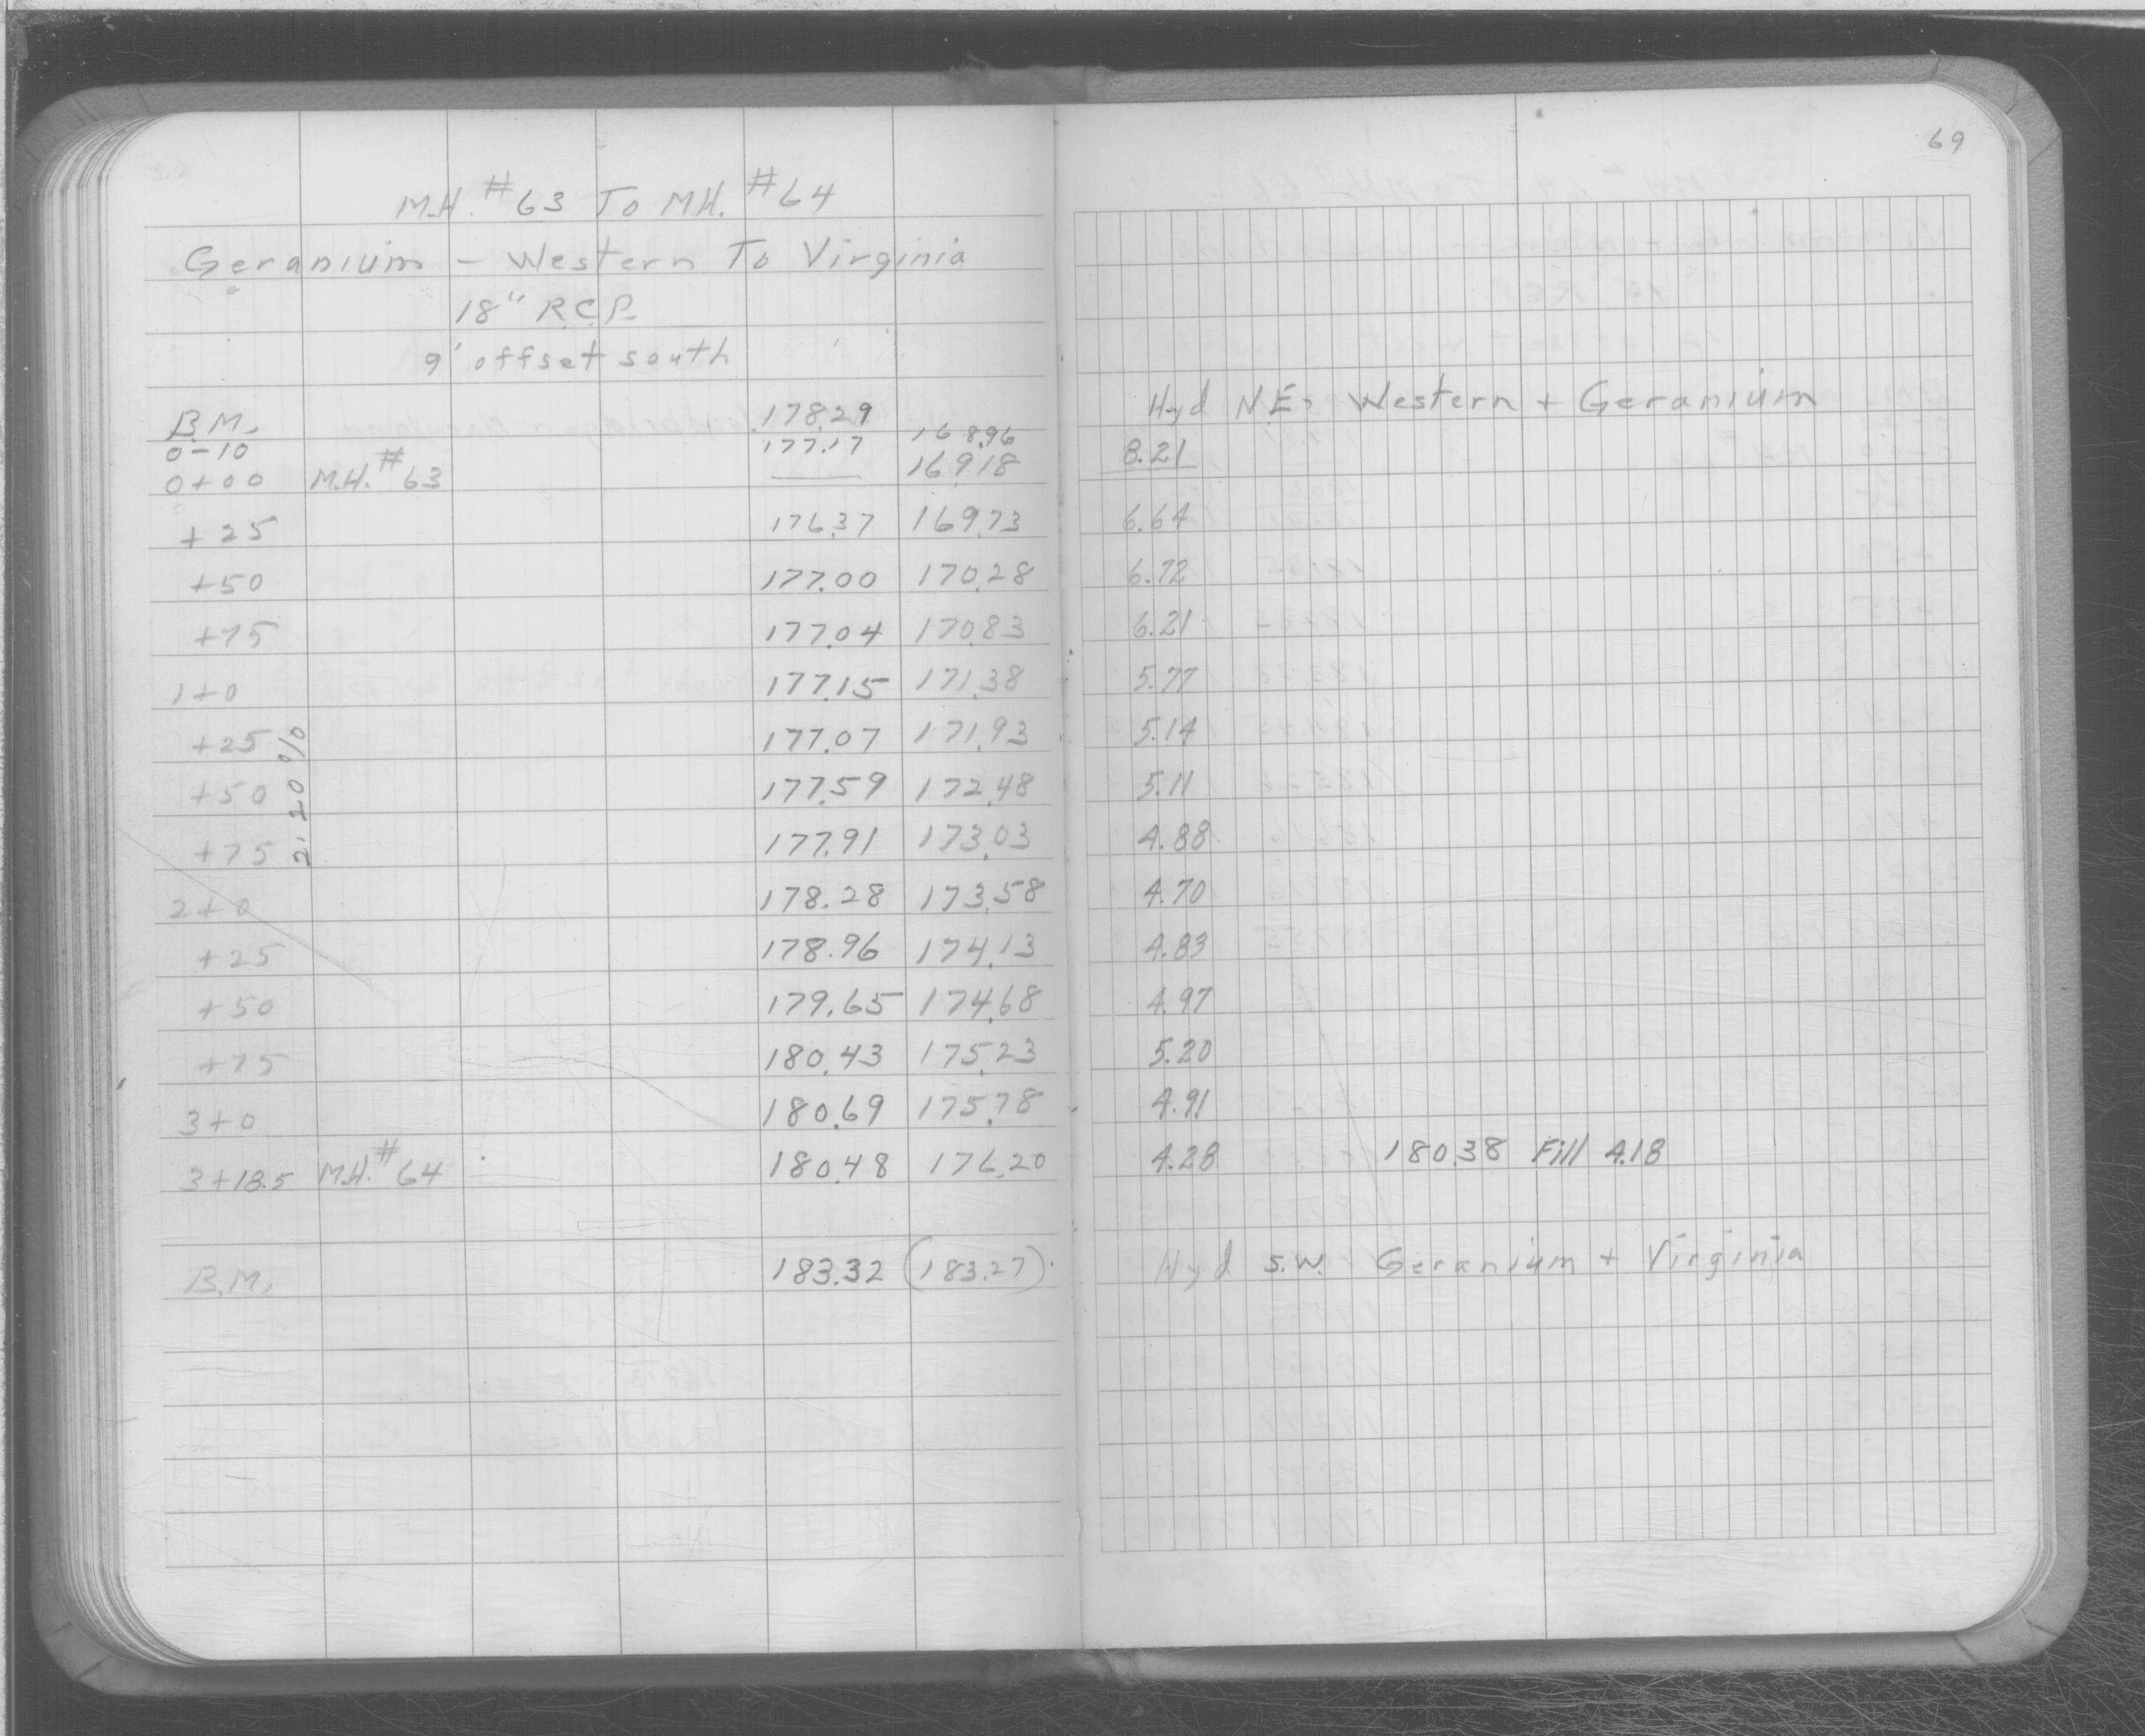 69
M.H. #63 To M.H. #64
Geranium - Western To Virginia
18" R.C.P.
9' offset south
B.M. 178.29 Hyd N.E. Western + Geranium
0-10 177.17 168.96 8.21
0+00 M.H. #63 — 169.18
+25 176.37 169.73 6.64
+50 177.00 170.28 6.72
+75 177.04 170.83 6.21
1+0 177.15 171.38 5.77
+25 177.07 171.93 5.14
+50 177.59 172.48 5.11
+75 177.91 173.03 4.88
2.20 %
2+0 178.28 173.58 4.70
+25 178.96 174.13 4.83
+50 179.65 174.68 4.97
+75 180.43 175.23 5.20
3+0 180.69 175.78 4.91
3+18.5 M.H. #64 180.48 176.20 4.28 180.38 Fill 4.18
B.M. 183.32 (183.27) Hyd S.W. Geranium + Virginia